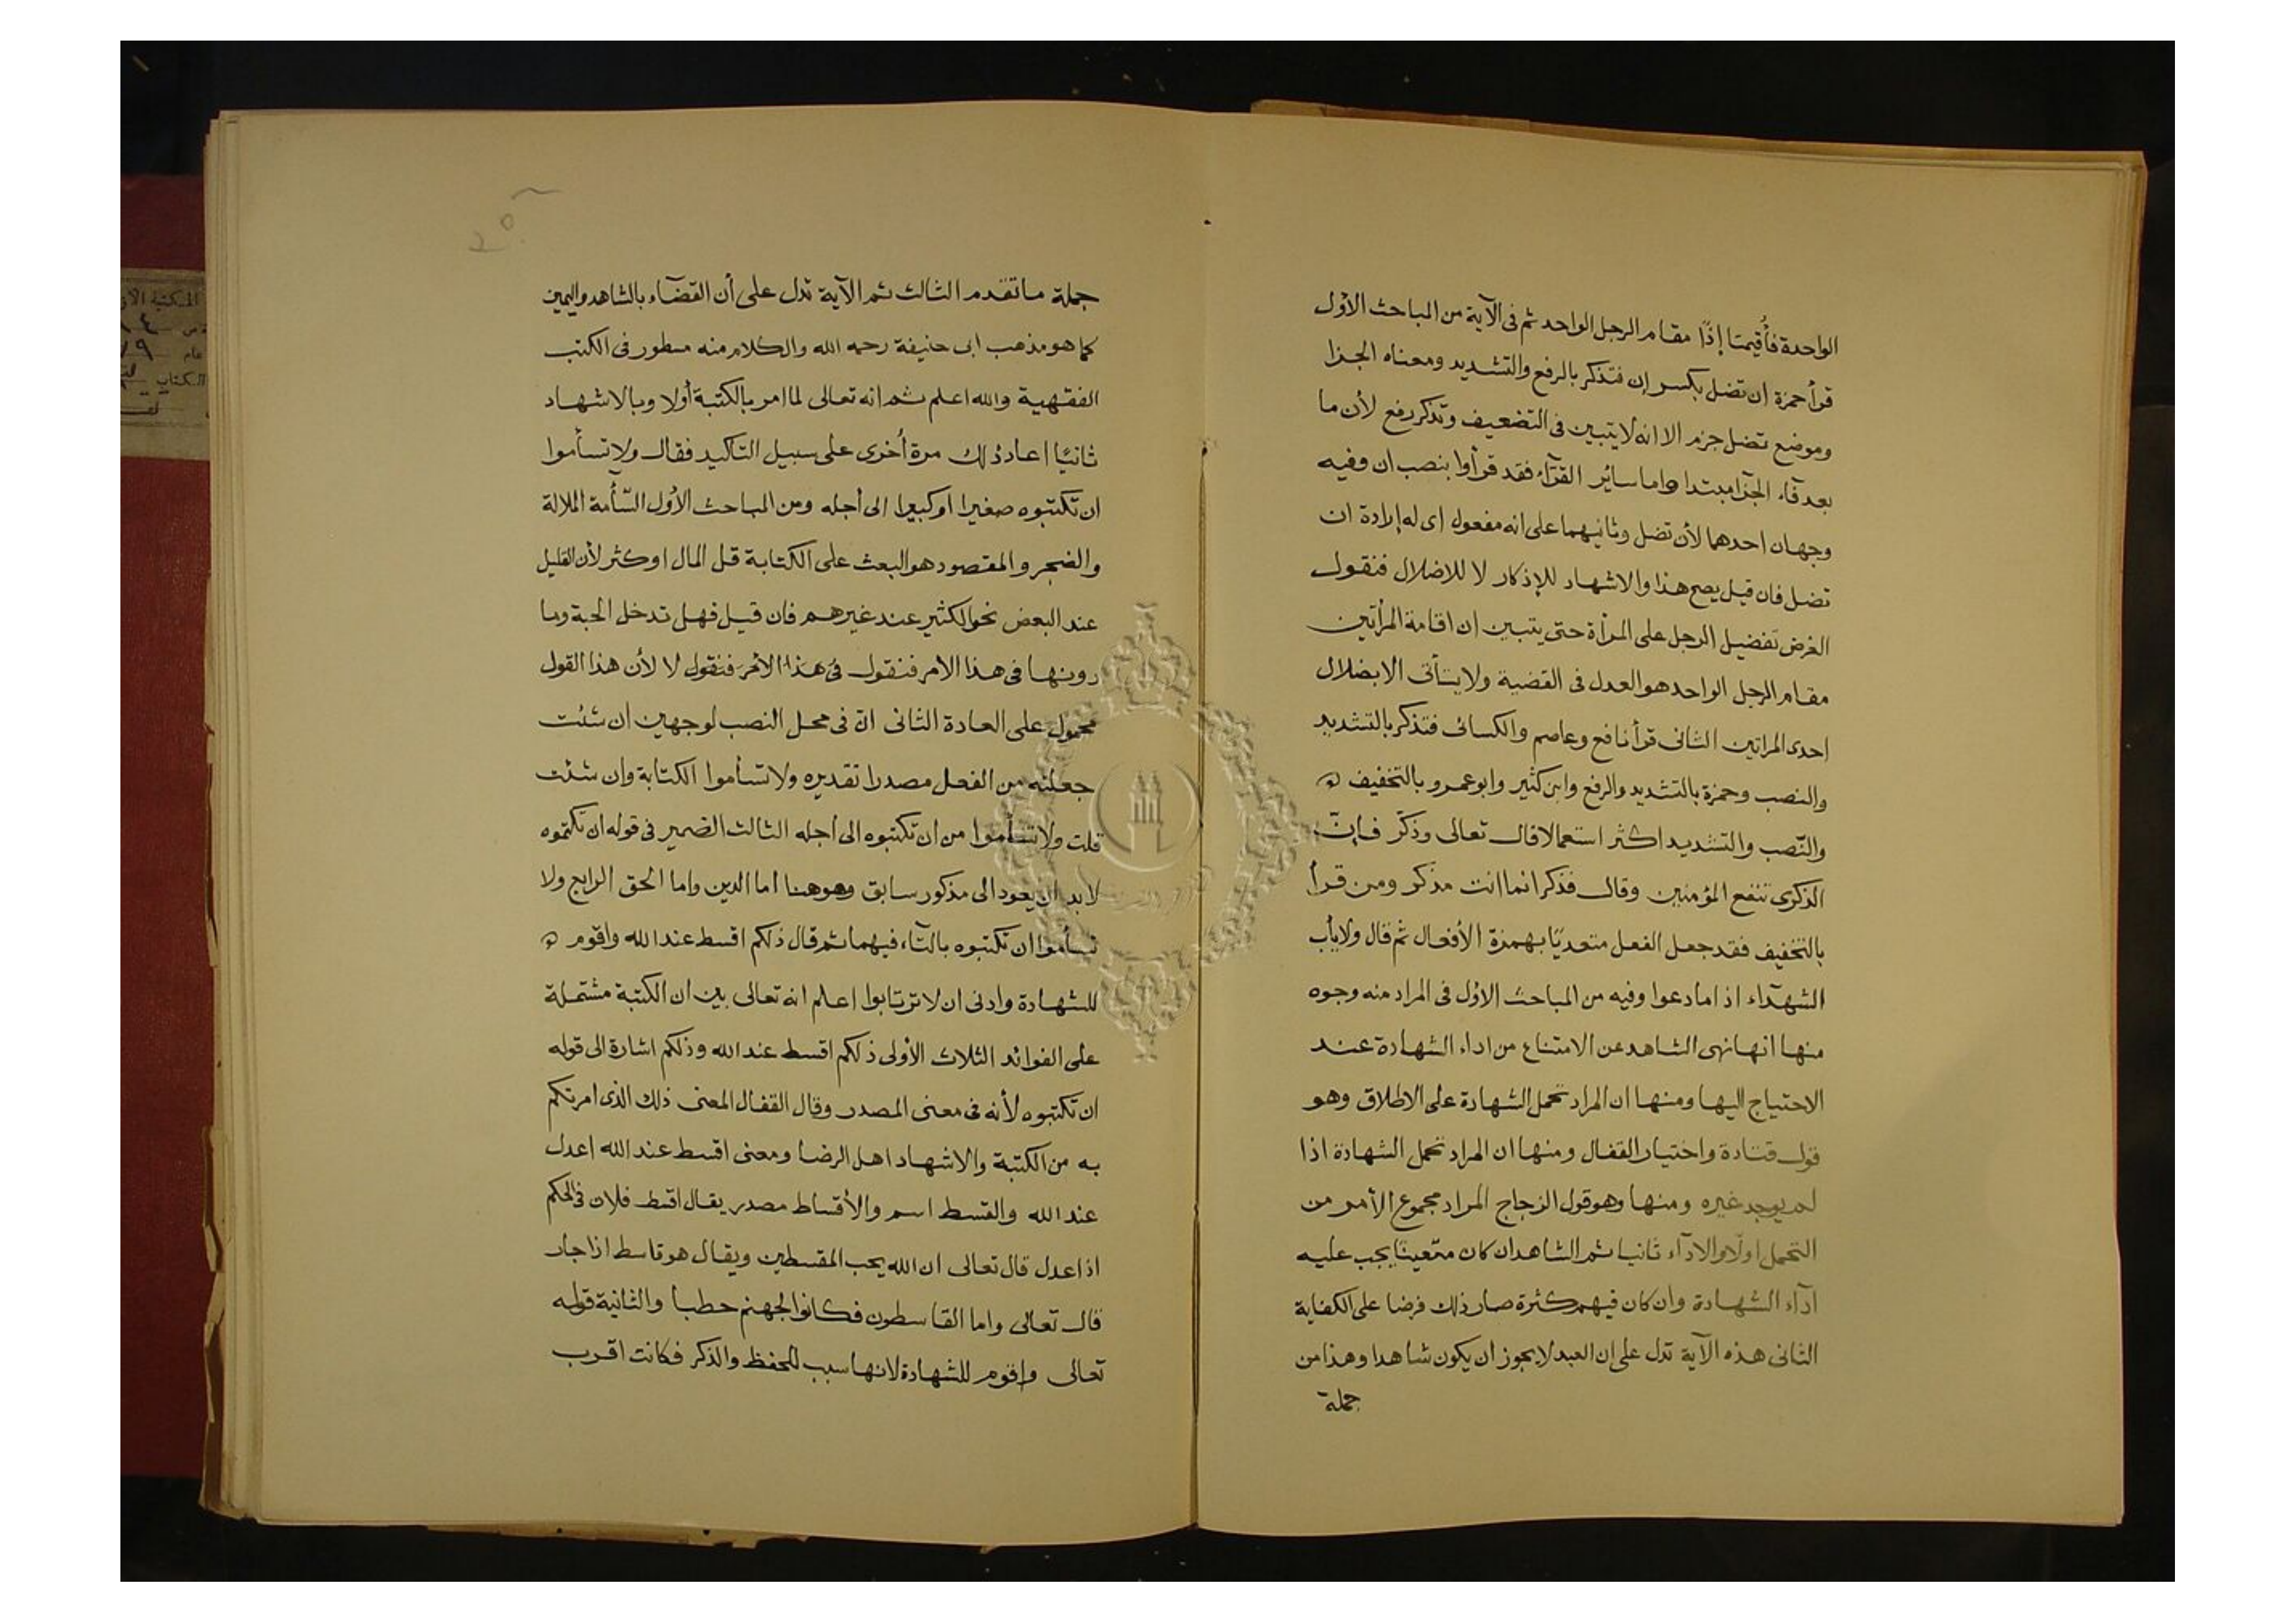 الواحدة فأُقيمتا إذًا مقام الرجل الواحد ثم فى الآية من المباحث الأول
قرأ حمزة ان تضل بكسر إن فتذكر بالرفع والتشديد ومعناه الجزا
وموضع تضل جزم الا انه لا يتبين فى التضعيف وتذكر رفع لأن ما
بعد فآء الجزآ مبتدا واما سائر القرّآء فقد قرأوا بنصب ان وفيه
وجهان احدهما لأن تضل وثانيهما على انه مفعول اى له إرادة ان
تضل فان قيل يصح هذا والاشهاد للإذكار لا للاضلال فنقول
الغرض تفضيل الرجل على المرأة حتى يتبين ان اقامة المرأتين
مقام الرجل الواحد هو العدل فى القضية ولا يتأتى الا بضلال
احدى المراتين الثانى قرأ نافع وعاصم والكسائى فتذكر بالتشديد
والنصب وحمزة بالتشديد والرفع وابن كثير وابو عمرو بالتخفيف
والنّصب والتشديد اكثر استعمالا قال تعالى وذكّر فإنّ
الذكرى تنفع المؤمنين وقال فذكر انما انت مذكر ومن قرأ
بالتخفيف فقد جعل الفعل متعديًا بهمزة الأفعال ثم قال ولا يأب
الشهدآء اذا ما دعوا وفيه من المباحث الاول فى المراد منه وجوه
منها انها نهى الشاهد عن الامتناع من اداء الشهادة عند
الاحتياج اليها ومنها ان المراد تحمل الشهادة على الاطلاق وهو
قول قتادة واختيار القفال ومنها ان المراد تحمل الشهادة اذا
لم يوجد غيره ومنها وهو قول الزجاج المراد مجموع الأمر من
التحمل اولًا والادآء ثانيا ثم الشاهد ان كان متعينًا يجب عليه
ادآء الشهادة وان كان فيهم كثرة صار ذلك فرضا على الكفاية
الثانى هذه الآية تدل على ان العبد لا يجوز ان يكون شاهدا وهذا من
جملة
جملة ما تقدم الثالث ثم الآية تدل على أن القضآء بالشاهد واليمين
كما هو مذهب ابى حنيفة رحمه الله والكلام منه مسطور فى الكتب
الفقهية والله اعلم ثم انه تعالى لما امر بالكتبة أولا وبالاشهاد
ثانيًا اعاد ذلك مرة أخرى على سبيل التاكيد فقال ولا تسأموا
ان تكتبوه صغيرا او كبيرا الى أجله ومن المباحث الأول السّأمة الملالة
والضجر والمقصود هو البعث على الكتابة قل المال او كثر لأن القليل
عند البعض نحو الكثير عند غيرهم فان قيل فهل تدخل الحبة وما
دونها فى هذا الامر فنقول فى هذا الأمر فنقول لا لأن هذا القول
محمول على العادة الثانى ان فى محل النصب لوجهين ان شئت
جعلته من الفعل مصدرا تقديره ولا تسأموا الكتابة وان شئت
قلت ولا تسأموا من ان تكتبوه الى اجله الثالث الضمير فى قوله ان تكتبوه
لا بد ان يعود الى مذكور سابق وهو هنا اما الدين واما الحق الرابع ولا
تسأموا ان تكتبوه بالتّاء فيهما ثم قال ذلكم اقسط عند الله واقوم
للشهادة وادنى ان لا ترتابوا اعلم انه تعالى بين ان الكتبة مشتملة
على الفوائد الثلاث الأولى ذلكم اقسط عند الله وذلكم اشارة الى قوله
ان تكتبوه لأنه فى معنى المصدر وقال القفال المعنى ذلك الذى امرتكم
به من الكتبة والاشهاد اهل الرضا ومعنى اقسط عند الله اعدل
عند الله والقسط اسم والأقساط مصدر يقال اقسط فلان فى الحكم
اذا عدل قال تعالى ان الله يحب المقسطين ويقال هو قاسط اذا جار
قال تعالى واما القاسطون فكانوا لجهنم حطبا والثانية قوله
تعالى واقوم للشهادة لانها سبب للحفظ والذكر فكانت اقرب